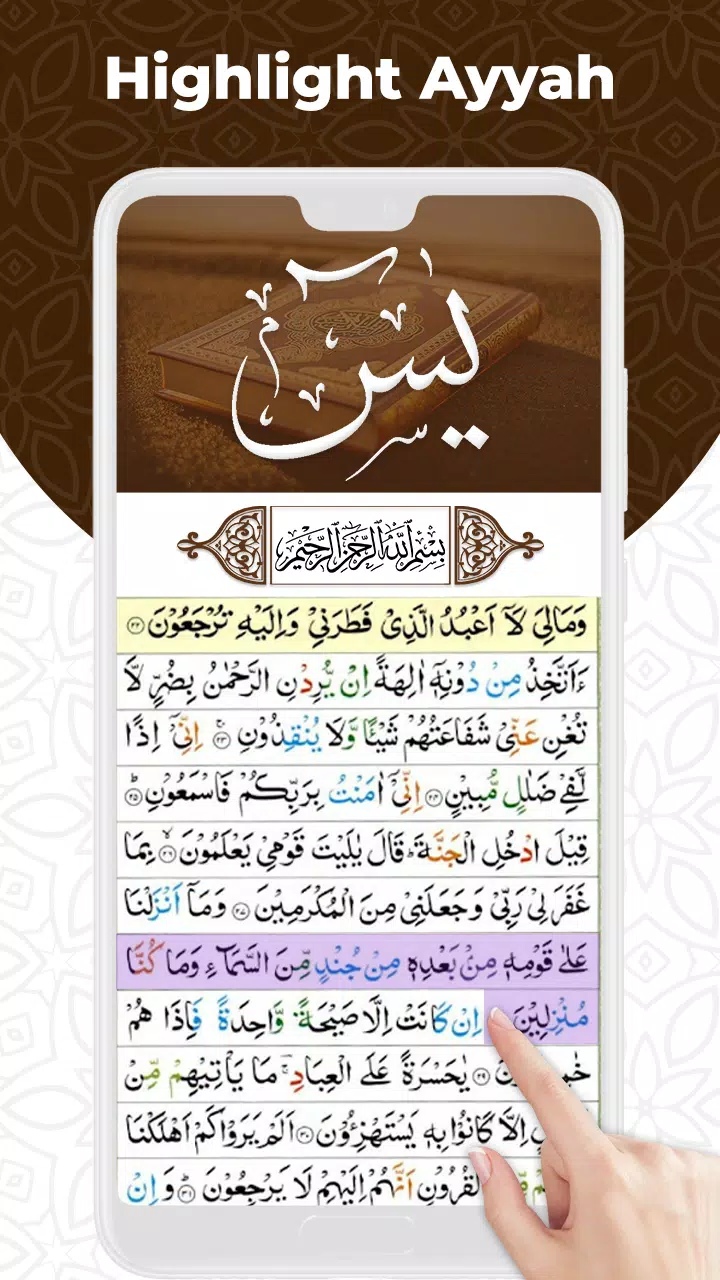 Highlight Ayyah
يٰسٓ
بِسْمِ اللّٰهِ الرَّحْمٰنِ الرَّحِيْمِ
وَمَالِىَ لَآ اَعْبُدُ الَّذِىْ فَطَرَنِىْ وَاِلَيْهِ تُرْجَعُوْنَ ۲۲
ءَاَتَّخِذُ مِنْ دُوْنِهٖٓ اٰلِهَةً اِنْ يُّرِدْنِ الرَّحْمٰنُ بِضُرٍّ لَّا
تُغْنِ عَنِّىْ شَفَاعَتُهُمْ شَيْـًٔا وَّلَا يُنْقِذُوْنِ ۲۳ اِنِّىْٓ اِذًا
لَّفِىْ ضَلٰلٍ مُّبِيْنٍ ۲۴ اِنِّىْٓ اٰمَنْتُ بِرَبِّكُمْ فَاسْمَعُوْنِ ۲۵
قِيْلَ ادْخُلِ الْجَنَّةَ ؕ قَالَ يٰلَيْتَ قَوْمِىْ يَعْلَمُوْنَ ۲۶ بِمَا
غَفَرَ لِىْ رَبِّىْ وَجَعَلَنِىْ مِنَ الْمُكْرَمِيْنَ ۲۷ وَمَآ اَنْزَلْنَا
عَلٰى قَوْمِهٖ مِنْۢ بَعْدِهٖ مِنْ جُنْدٍ مِّنَ السَّمَآءِ وَمَا كُنَّا
مُنْزِلِيْنَ اِنْ كَانَتْ اِلَّا صَيْحَةً وَّاحِدَةً فَاِذَا هُمْ
۲۹ يٰحَسْرَةً عَلَى الْعِبَادِ ۚ مَا يَاْتِيْهِمْ مِّنْ
اِلَّا كَانُوْا بِهٖ يَسْتَهْزِءُوْنَ ۳۰ اَلَمْ يَرَوْا كَمْ اَهْلَكْنَا
الْقُرُوْنِ اَنَّهُمْ اِلَيْهِمْ لَا يَرْجِعُوْنَ ۳۱ وَاِنْ